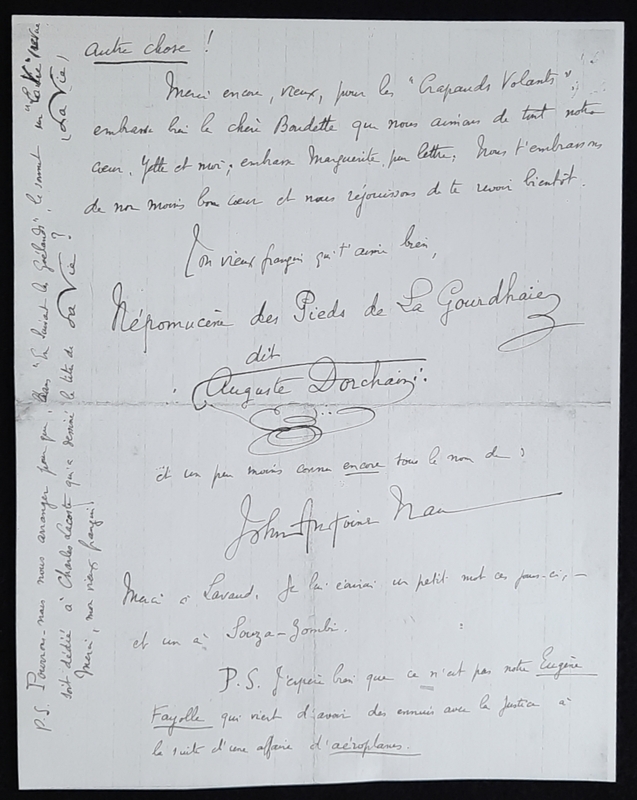 autre chose !
Merci encore, vieux, pour les "Crapauds Volants" ;
embrasse bien la chère Baudette que nous aimons de tout notre
cœur, Yette et moi ; embrasse Marguerite par lettre. Nous t'embrassons
de non moins bon cœur et nous réjouissons de te revoir bientôt.
Ton vieux frangin qui t'aime bien,
Népomucène des Pieds de La Gourdhaie
dit
Auguste Dorchain
et un peu moins connu encore sous le nom de :
John-Antoine Nau
Merci à Lavaud. Je lui écrirai un petit mot ces jours-ci, —
et un à Souza-Zombi.
P.S. J'espère bien que ce n'est pas notre Eugène
Fayolle qui vient d'avoir des ennuis avec la Justice à
la suite d'une affaire d'aéroplanes.
P.S. Pourrons-nous nous arranger pour que, dans "le des Goëlands", le sonnet un "La Vie"
soit dédié à Charles Lacoste qui a dessiné le titre de La Vie ? (La Vie)
Merci, mon vieux frangin !